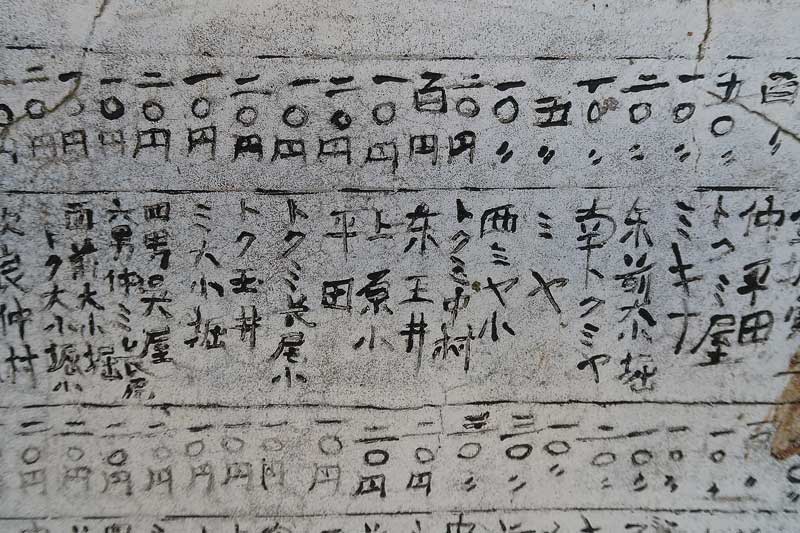 百〃
五〇〃
一〇〃
二〇〃
一〇〃
五〃
一〇〃
二〇円
百円
一〇円
二〇円
一〇円
二〇円
一〇円
二〇円
一〇円
一〇円
二〇円
仲平田
トクミ屋
ミキナ
东前小堀
南トクミヤ
ミヤ
西ミヤ小
トクミ中村
东玉井
上原小
平田
トクミ長尾小
トク玉井
ミ大小堀
四男呉屋
六男仲ミ
西前大小堀
トク大小堀小
次良仲村
一〇〃
一〇〃
二〇〃
二〇〃
一〇〃
三〇〃
二〇円
二〇円
一〇円
一〇円
一〇円
一〇円
二〇円
二〇円
二〇円
二〇円